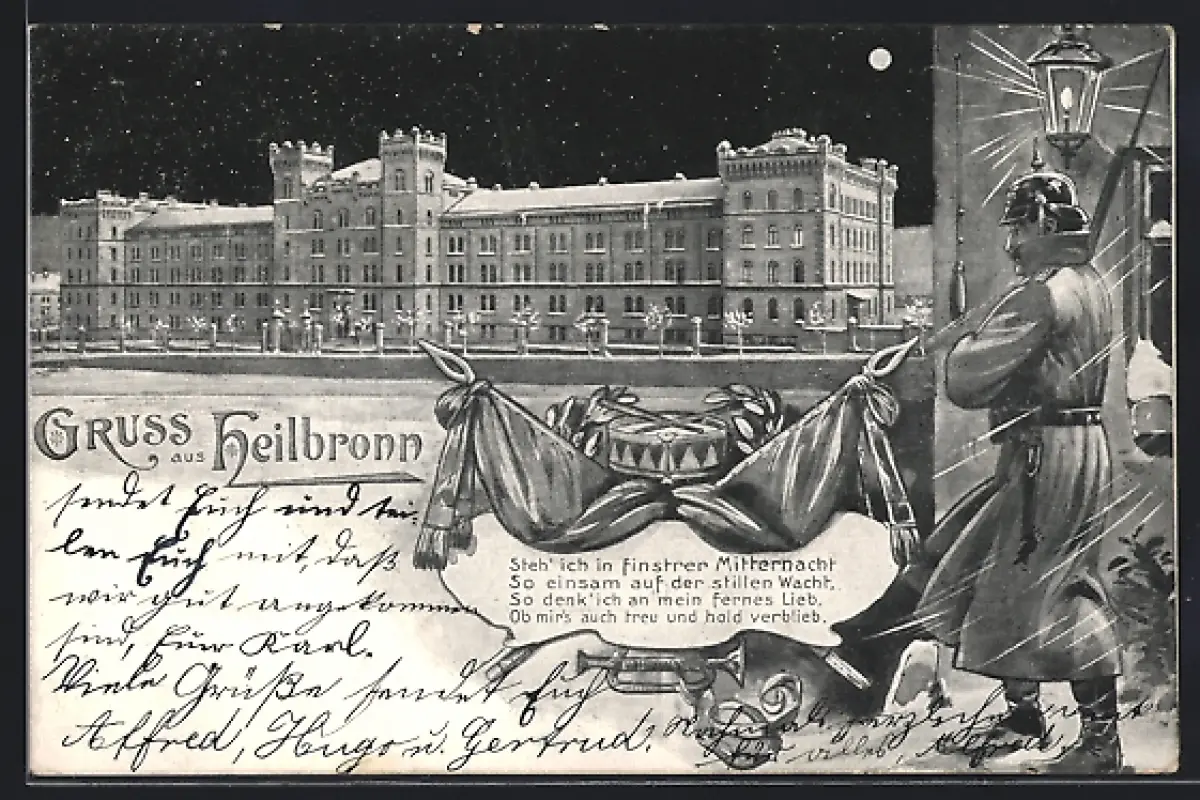 Gruss aus Heilbronn
sendet Euch und tei-
len Euch mit, daß
wir gut angekommen
sind, Euer Karl.
Viele Grüße sendet Euch
Alfred, Hugo u. Gertrud.
Steh' ich in finstrer Mitternacht
So einsam auf der stillen Wacht,
So denk' ich an mein fernes Lieb,
Ob mir's auch treu und hold verblieb.
Alfred